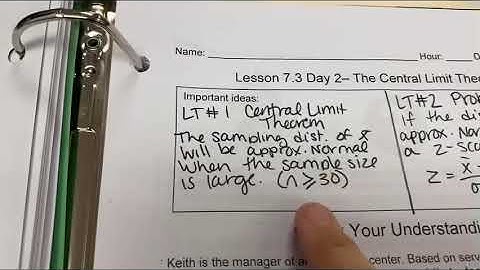 Name: Hour: D
Lesson 7.3 Day 2– The Central Limit The
Important ideas:
LT#1 Central Limit
Theorem
The sampling dist. of x̄
will be approx. Normal
when the sample size
is large. (n ≥ 30)
LT#2 Pro
if the di
approx. No
a z-sco
z = x̄ -
σ
Your Understandi
Keith is the manager of a center. Based on serv